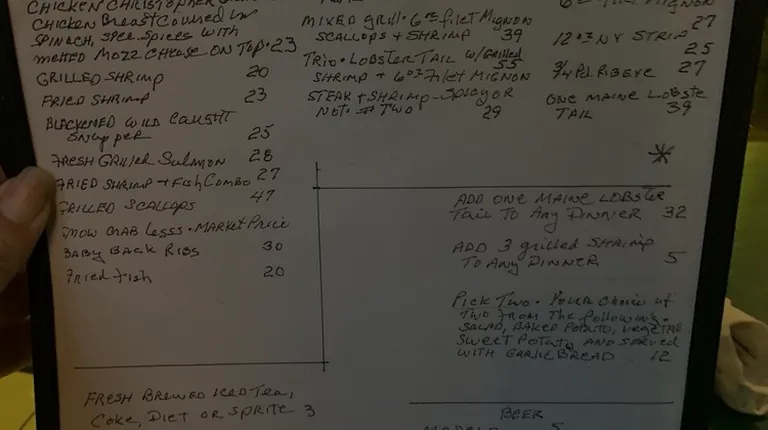 CHICKEN CHRISTOPHER
CHICKEN BREAST COVERED IN
SPINACH, SPEC. SPICES WITH
MELTED MOZZ CHEESE ON TOP. 23
GRILLED SHRIMP 20
FRIED SHRIMP 23
BLACKENED WILD CAUGHT
SNAPPER 25
FRESH GRILLED SALMON 28
FRIED SHRIMP + FISH COMBO 27
GRILLED SCALLOPS 47
SNOW CRAB LEGS • MARKET PRICE
BABY BACK RIBS 30
FRIED FISH 20
MIXED GRILL • 6 oz FILET MIGNON
SCALLOPS + SHRIMP 39
TRIO • LOBSTER TAIL W/GRILLED
SHRIMP + 6 oz FILET MIGNON 55
STEAK + SHRIMP - SPICY OR
NOT # TWO 29
27
12 oz NY STRIP
25
3/4 Lb RIBEYE 27
ONE MAINE LOBSTE
TAIL 39
*
ADD ONE MAINE LOBSTER
TAIL TO ANY DINNER 32
ADD 3 grilled SHRIMP
TO ANY DINNER 5
PICK TWO • YOUR CHOICE OF
TWO FROM THE FOLLOWING •
SALAD, BAKED POTATO, VEGETABLE
SWEET POTATO AND SERVED
WITH GARLIC BREAD 12
FRESH BREWED ICED TEA,
COKE, DIET OR SPRITE 3
BEER
5